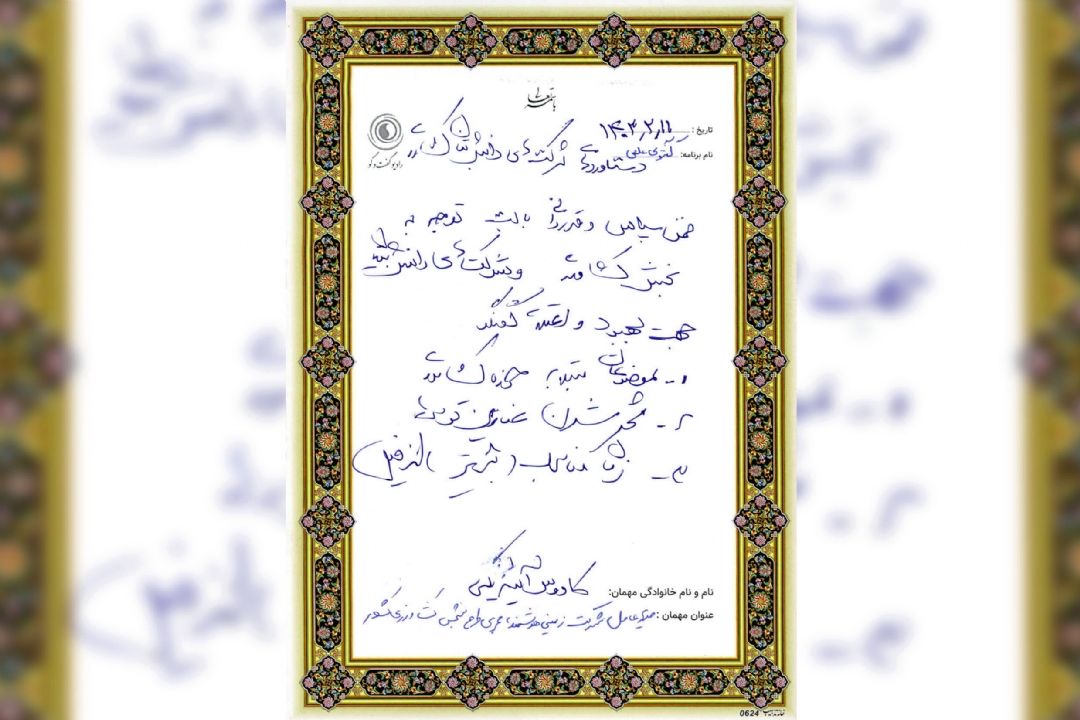 باسمه تعالی
تاریخ: ۱۴۰۳/۲/۱۱
رادیو گفت و گو
نام برنامه: گفتگوی علمی
دستاوردهای شرکت‌های دانش بنیان کشاورزی
ضمن سپاس و قدردانی بابت توجه به
بخش کشاورزی و شرکت‌های دانش بنیان
جهت بهبود و
۱- موضوعات مبتلابه حوزه کشاورزی
۲- شدن عناوین
۳- زمان مناسب (
نام و نام خانوادگی مهمان: کاووس
عنوان مهمان: مدیرعامل شرکت زمین هوشمند، مجری طرح بخش کشاورزی کشور
0624